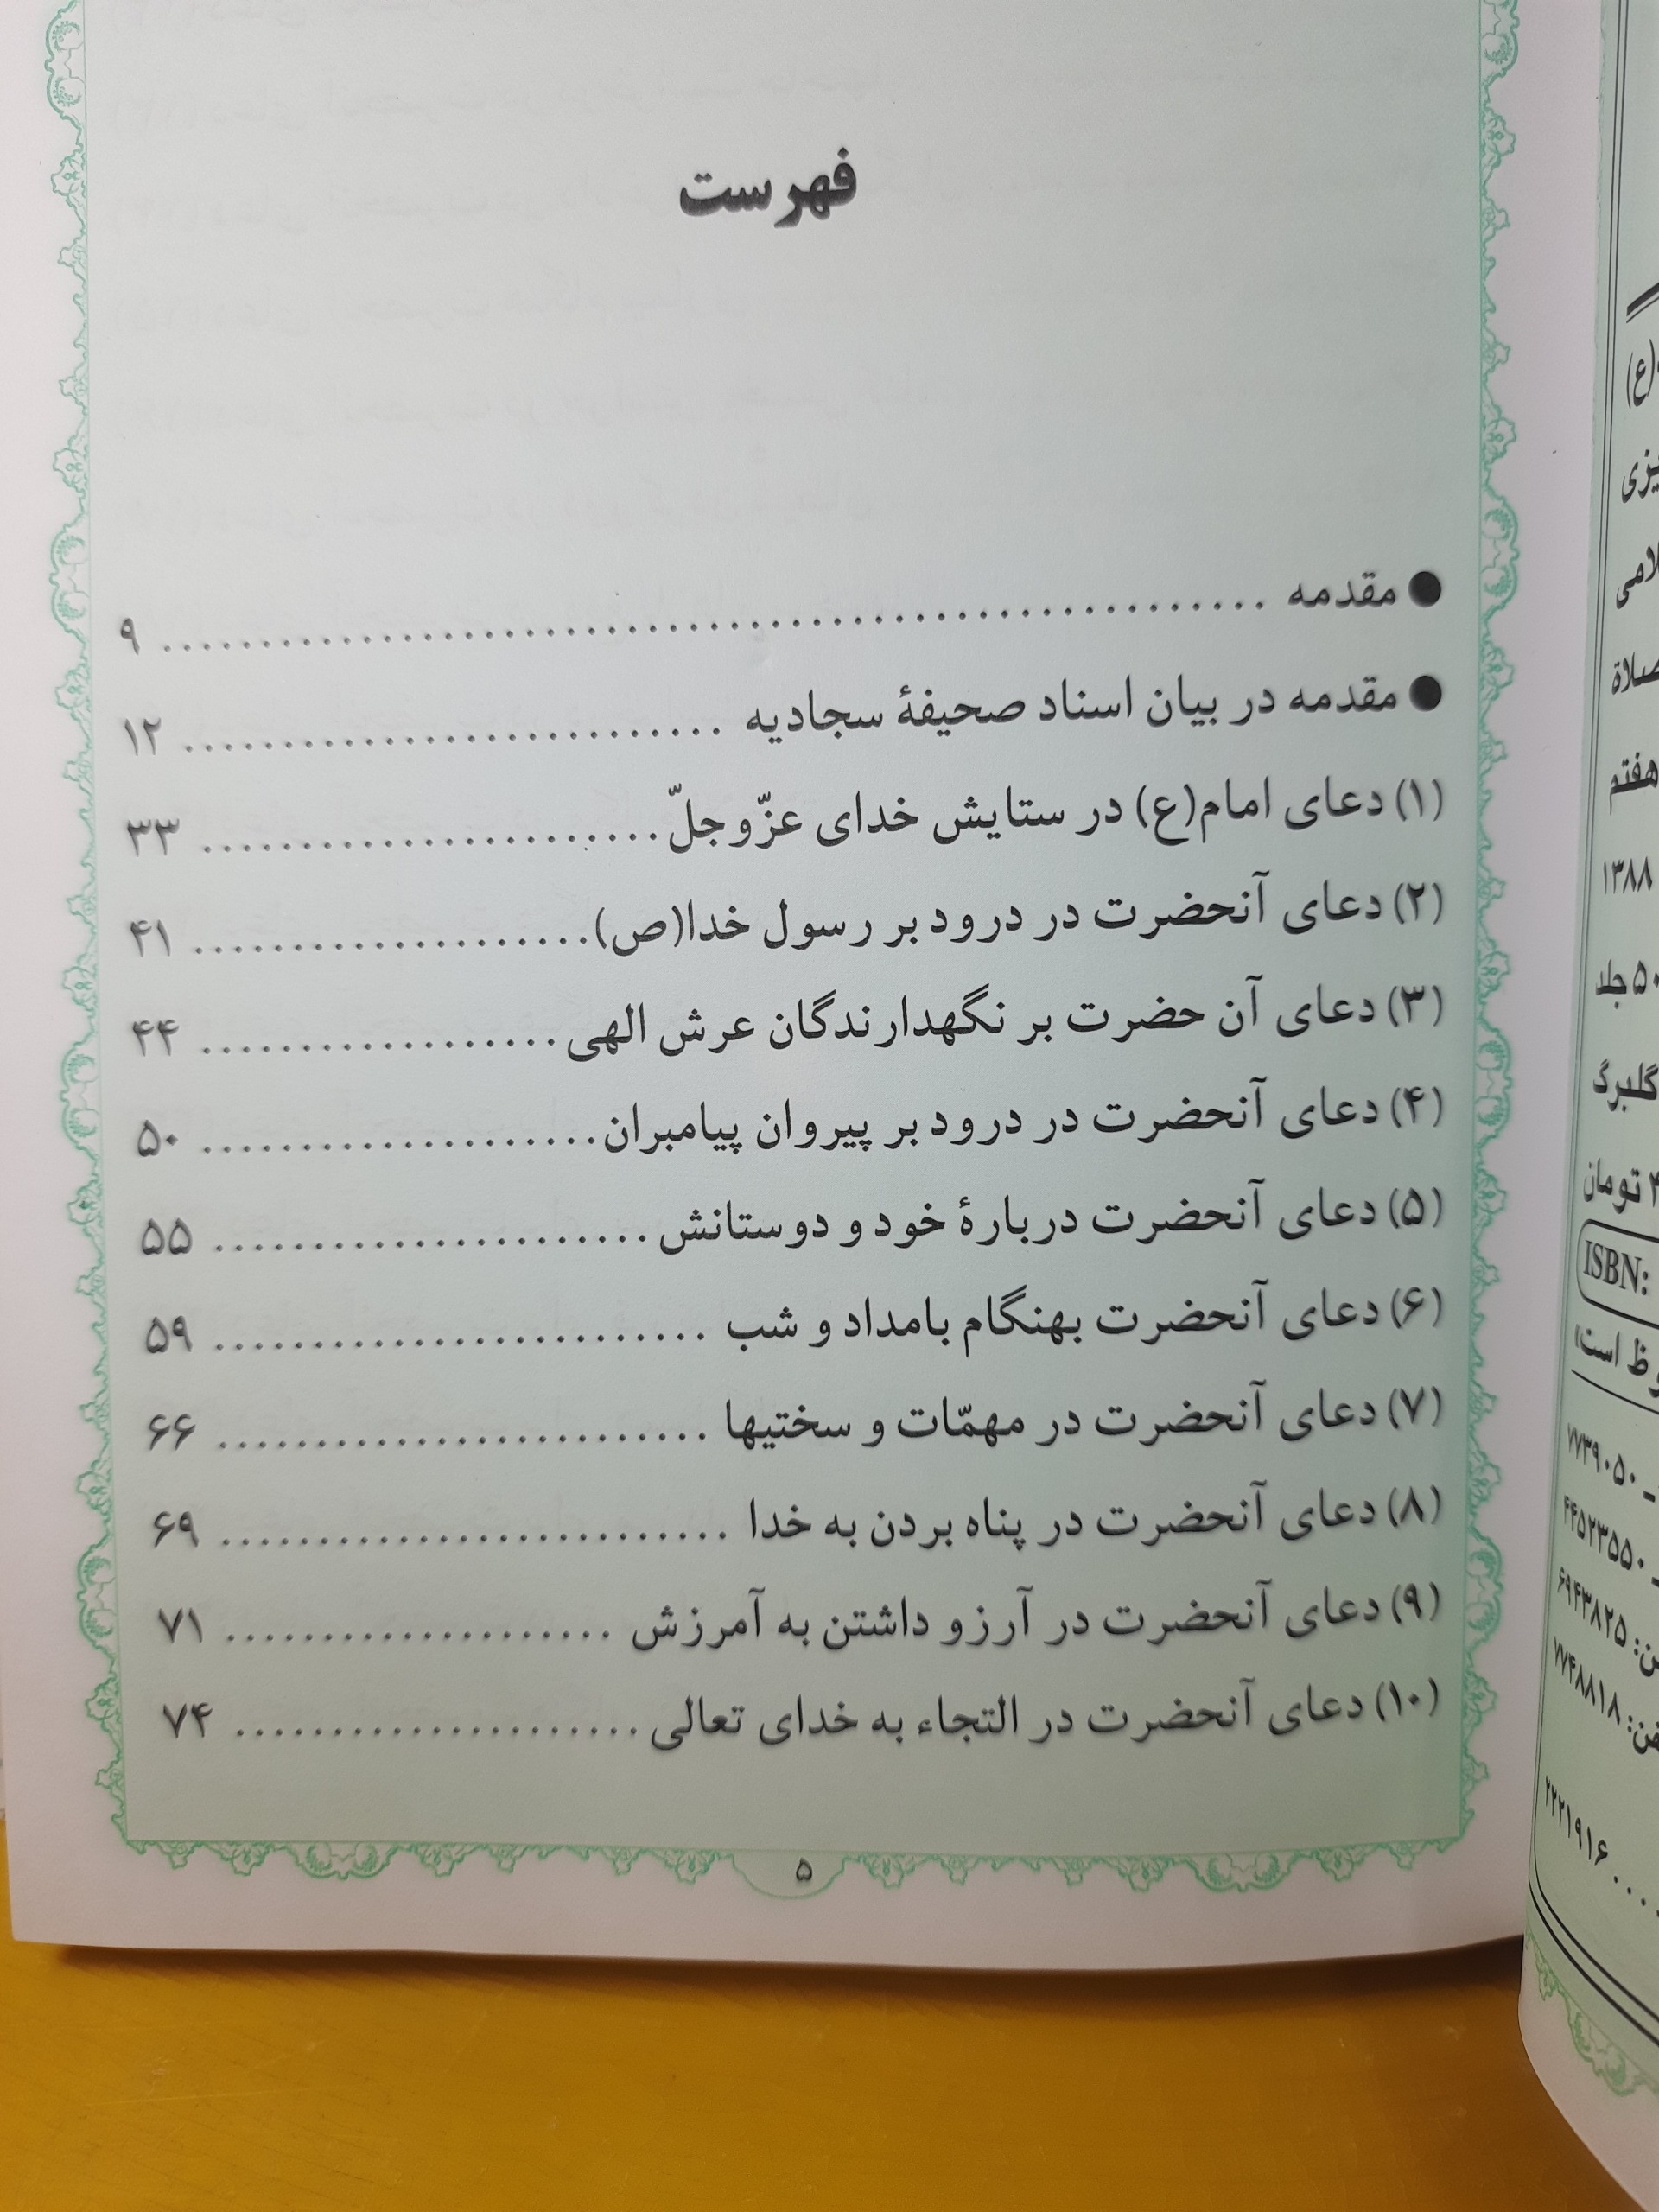 فهرست
● مقدمه ........................................ ۹
● مقدمه در بیان اسناد صحیفهٔ سجادیه ........................... ۱۲
(۱) دعای امام(ع) در ستایش خدای عزّوجلّ ....................... ۳۳
(۲) دعای آنحضرت در درود بر رسول خدا(ص) .................... ۴۱
(۳) دعای آن حضرت بر نگهدارندگان عرش الهی .................. ۴۴
(۴) دعای آنحضرت در درود بر پیروان پیامبران .................... ۵۰
(۵) دعای آنحضرت دربارهٔ خود و دوستانش ...................... ۵۵
(۶) دعای آنحضرت بهنگام بامداد و شب ......................... ۵۹
(۷) دعای آنحضرت در مهمّات و سختیها ......................... ۶۶
(۸) دعای آنحضرت در پناه بردن به خدا .......................... ۶۹
(۹) دعای آنحضرت در آرزو داشتن به آمرزش .................... ۷۱
(۱۰) دعای آنحضرت در التجاء به خدای تعالی ..................... ۷۴
۵
(ع)
هفتم
۱۳۸۸
جلد
گلبرگ
تومان
ISBN:
است»
۷۷۳۹۰۵۰
۶۹۴۳۸۲۵
۷۷۴۸۸۱۸
۲۲۲۱۹۱۶